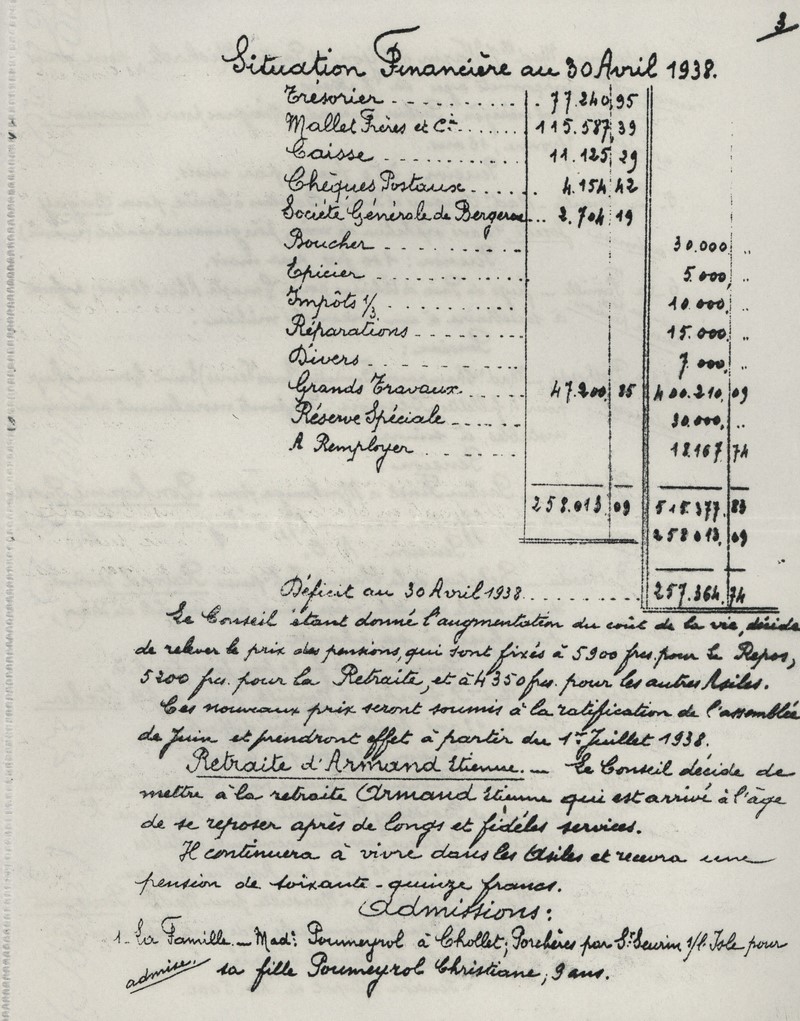 3
Situation Financière au 30 Avril 1938.
Trésorier . . . . . . . . . . 77.240,95
Mallet Frères et Cie . . . . . . 115.587,39
Caisse . . . . . . . . . . 11.125,29
Chèques Postaux . . . . . 4.154,42
Société Générale de Bergerac . . . 2.704,19
Boucher . . . . . . . . . . 30.000, "
Epicier . . . . . . . . . . . 5.000, "
Impôts 1/3 . . . . . . . . . . 10.000, "
Réparations . . . . . . . . 15.000, "
Divers . . . . . . . . . . 7.000, "
Grands Travaux . . . . . 47.200,85 400.210,09
Réserve Spéciale . . . . . . 30.000, "
A Remployer . . . . . . 18.167,74
258.013,09 515.377,83
258.013,09
Déficit au 30 Avril 1938 . . . . . . . . . 257.364,74
Le Conseil étant donné l'augmentation du coût de la vie, décide
de relever le prix des pensions, qui sont fixés à 5900 frcs. pour le Repos,
5200 frcs. pour la Retraite, et à 4350 frcs. pour les autres Asiles.
Ces nouveaux prix seront soumis à la ratification de l'assemblée
de Juin et prendront effet à partir du 1er Juillet 1938.
Retraite d'Armand Etienne. — Le Conseil décide de
mettre à la retraite Armand Etienne qui est arrivé à l'âge
de se reposer après de longs et fidèles services.
Il continuera à vivre dans les Asiles et recevra une
pension de soixante-quinze francs.
Admissions:
1 - La Famille. — Made. Poumeyrol à Chollet, Porchères par St Seurin s/l'Isle pour
admise. sa fille Poumeyrol Christiane, 9 ans.